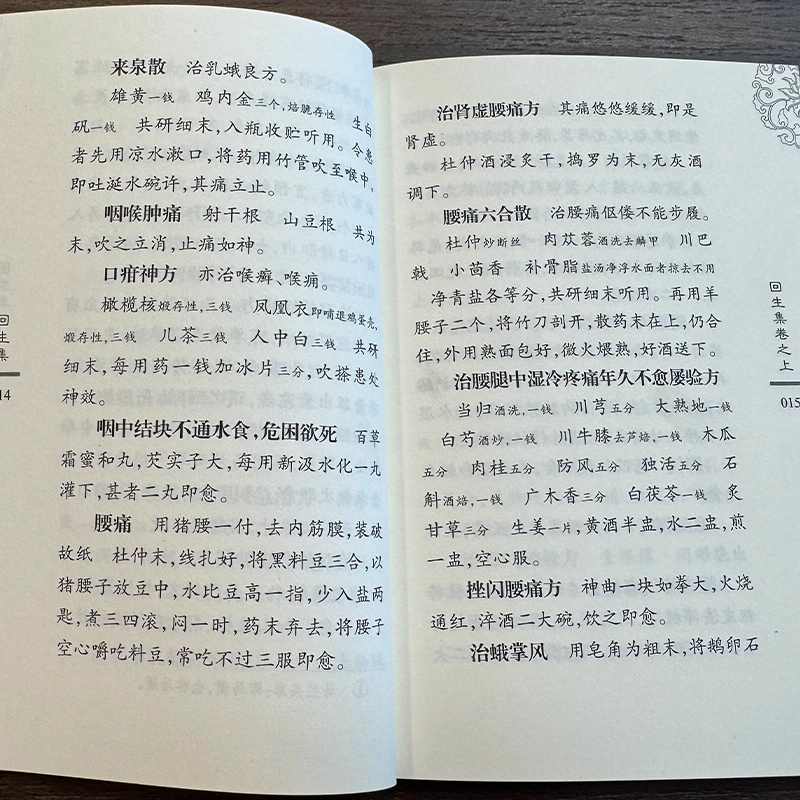 来泉散　治乳蛾良方。
雄黄一钱　鸡内金三个,焙脆存性　生白
矾一钱　共研细末,入瓶收贮听用。令患
者先用凉水漱口,将药用竹管吹至喉中,
即吐涎水碗许,其痛立止。
咽喉肿痛　射干根　山豆根　共为
末,吹之立消,止痛如神。
口疳神方　亦治喉癣、喉痈。
橄榄核煅存性,三钱　凤凰衣即哺退鸡蛋壳,
煅存性,三钱　儿茶三钱　人中白三钱　共研
细末,每用药一钱加冰片三分,吹搽患处
神效。
咽中结块不通水食,危困欲死　百草
霜蜜和丸,芡实子大,每用新汲水化一丸
灌下,甚者二丸即愈。
腰痛　用猪腰一付,去内筋膜,装破
故纸　杜仲末,线扎好,将黑料豆三合,以
猪腰子放豆中,水比豆高一指,少入盐两
匙,煮三四滚,闷一时,药末弃去,将腰子
空心嚼吃料豆,常吃不过三服即愈。
回生集
14
治肾虚腰痛方　其痛悠悠缓缓,即是
肾虚。
杜仲酒浸炙干,捣罗为末,无灰酒
调下。
腰痛六合散　治腰痛伛偻不能步履。
杜仲炒断丝　肉苁蓉酒洗去麟甲　川巴
戟　小茴香　补骨脂盐汤净浮水面者掠去不用
净青盐各等分,共研细末听用。再用羊
腰子二个,将竹刀剖开,散药末在上,仍合
住,外用熟面包好,微火煨熟,好酒送下。
治腰腿中湿冷疼痛年久不愈屡验方
当归酒洗,一钱　川芎五分　大熟地一钱
白芍酒炒,一钱　川牛膝去芦焙,一钱　木瓜
五分　肉桂五分　防风五分　独活五分　石
斛酒焙,一钱　广木香三分　白茯苓一钱　炙
甘草三分　生姜一片,黄酒半盅,水二盅,煎
一盅,空心服。
挫闪腰痛方　神曲一块如拳大,火烧
通红,淬酒二大碗,饮之即愈。
治蛾掌风　用皂角为粗末,将鹅卵石
回生集卷之上
015